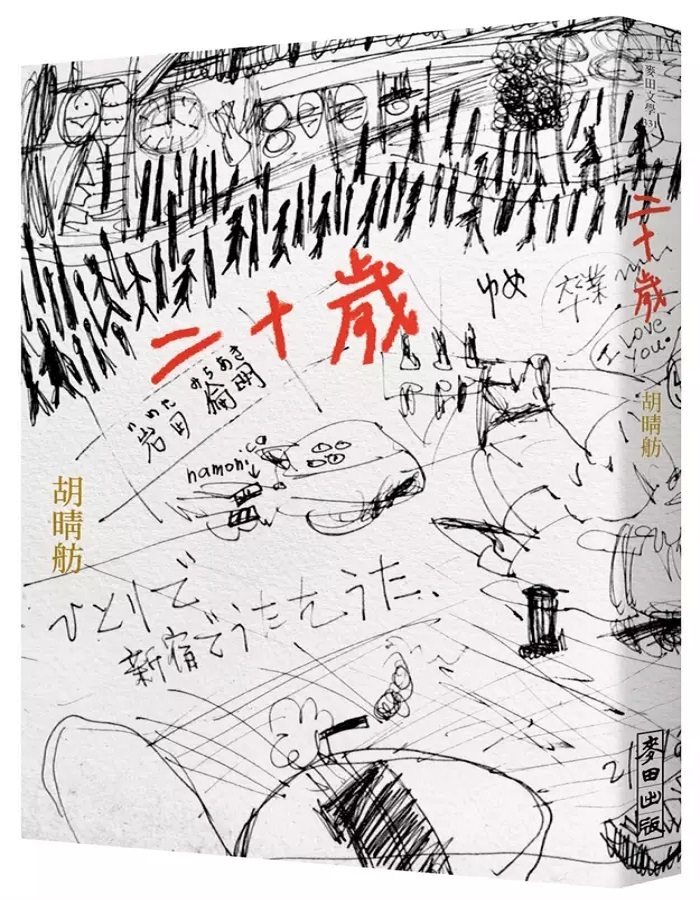 二十歲
ゆめ
卒業
I Love
you.
いわた みちあき
岩田 倫明
胡晴舫
ひとりで
新宿でうたをうた、
麥田文學 331
二十歲
胡晴舫
麥田出版